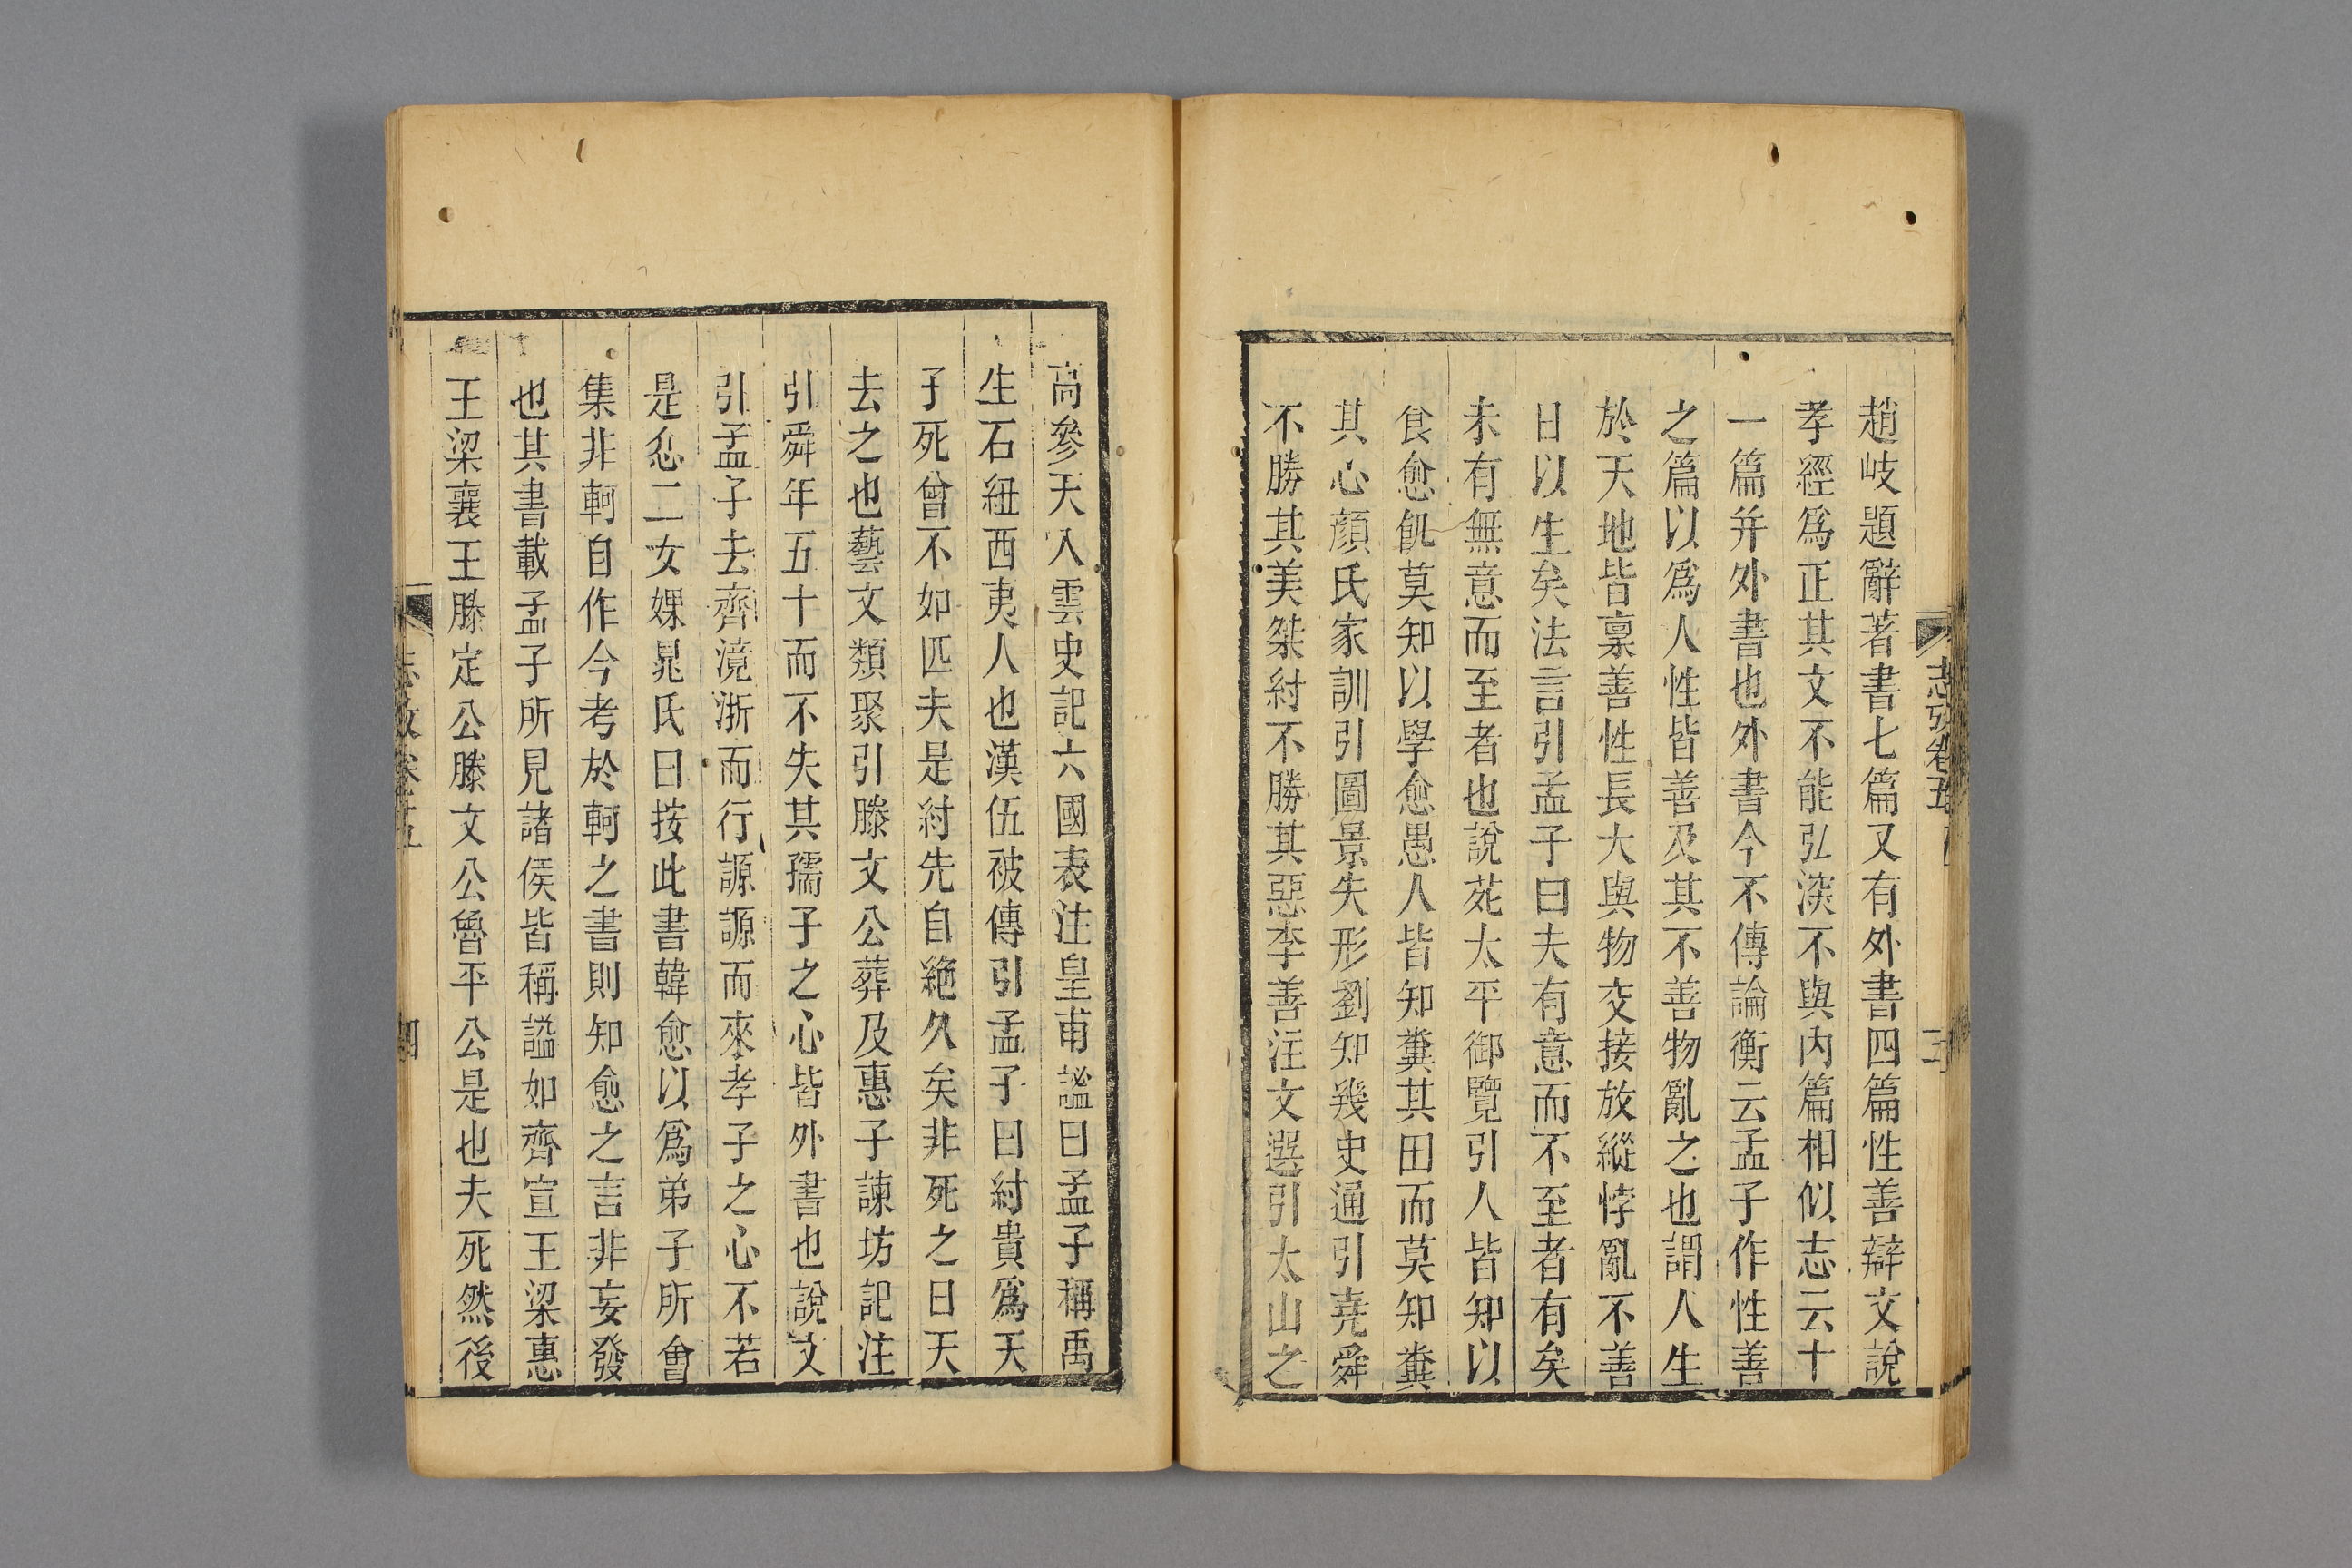 趙岐題辭著書七篇又有外書四篇性善辯文說
孝經爲正其文不能弘深不與内篇相似志云十
一篇并外書也外書今不傳論衡云孟子作性善
之篇以爲人性皆善及其不善物亂之也謂人生
於天地皆稟善性長大與物交接放縱悖亂不善
日以生矣法言引孟子曰夫有意而不至者有矣
未有無意而至者也說苑太平御覽引人皆知以
食愈飢莫知以學愈愚人皆知糞其田而莫知糞
其心顏氏家訓引圖景失形劉知幾史通引堯舜
不勝其美桀紂不勝其惡李善注文選引太山之
高參天入雲史記六國表注皇甫謐曰孟子稱禹
生石紐西夷人也漢伍被傳引孟子曰紂貴爲天
子死曾不如匹夫是紂先自絶久矣非死之日天
去之也藝文類聚引滕文公葬及惠子諫坊記注
引舜年五十而不失其孺子之心皆外書也說文
引孟子去齊滰淅而行謜謜而來孝子之心不若
是忿二女婐晁氏曰按此書韓愈以爲弟子所會
集非軻自作今考於軻之書則知愈之言非妄發
也其書載孟子所見諸侯皆稱謚如齊宣王梁惠
王梁襄王滕定公滕文公魯平公是也夫死然後